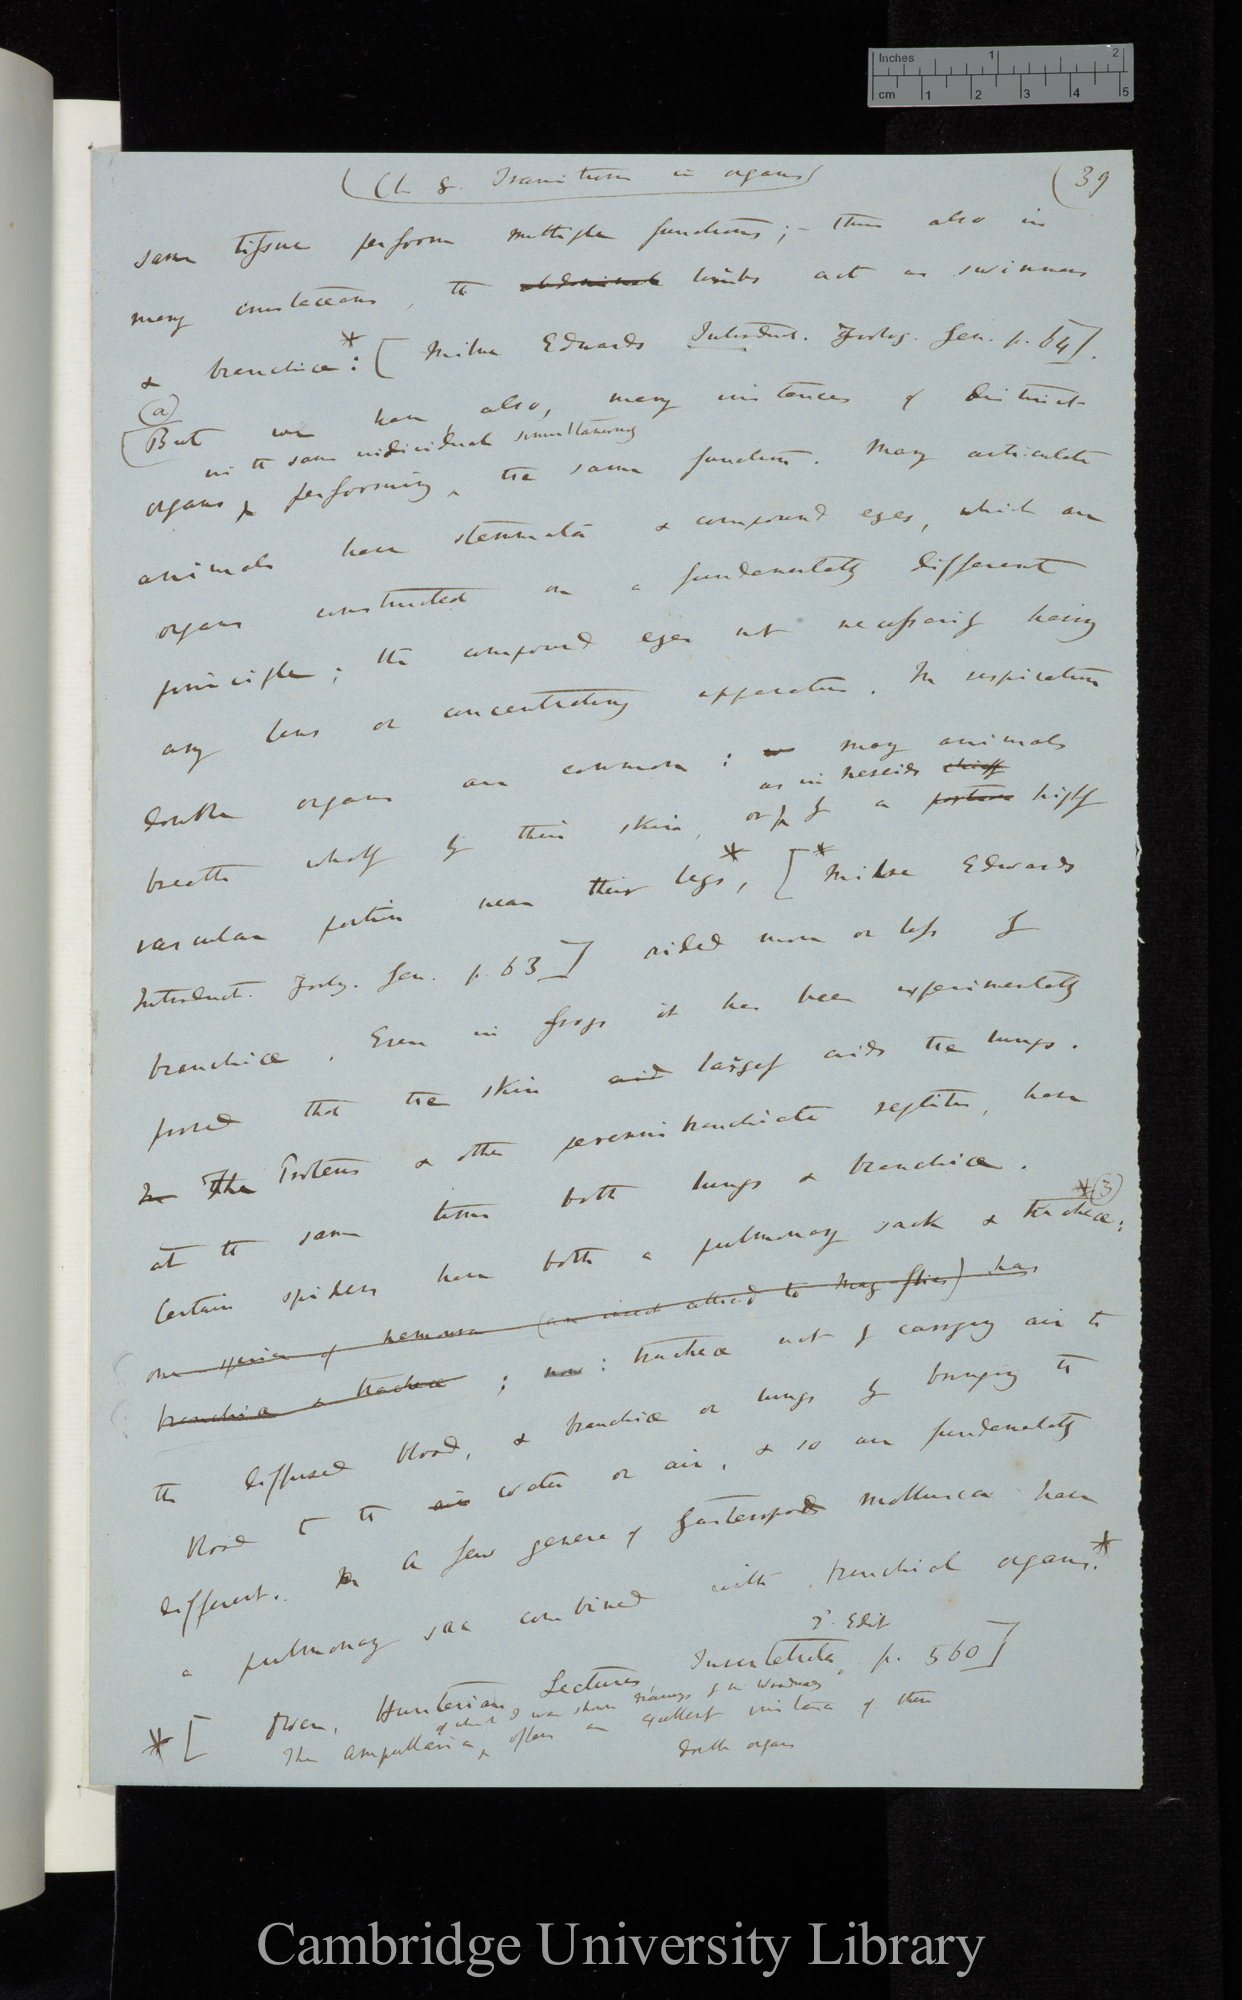 Inches 1 2
cm 1 2 3 4 5
(Ch 8. Transition in organs)
(39
same tissue perform multiple functions; – thus also in
many crustaceans, the abdominal limbs act as swimmers
& branchiæ*: [Milne Edwards Introduct. Zoolog. Gen. p. 64].
(a)
(But we have also, many instances of distinct
in the same individual simultaneously
organs performing ^ the same function. Many articulate
animals have stemmata & compound eyes, which are
organs constructed on a fundamentally different
principle; the compound eyes not necessarily having
any lens or concentrating apparatus. In respiration
double organs are common: many animals
as in Nereids chiefly
breathe wholly by their skin, or by a portion highly
vascular portion near their legs*, [*Milne Edwards
Introduct. Zoolog. Gen. p. 63] aided more or less by
branchiæ. Even in frogs it has been experimentally
proved that the skin aid largely aids the lungs.
In The Proteus & other perennibranchiate reptiles, have
at the same time both lungs & branchiæ.
*(3)
Certain spiders have both a pulmonary sack & tracheæ;
one species of Nemoura (an insect allied to May-flies) has
branchiæ & tracheæ; now: tracheæ act by carrying air to
the diffused blood, & branchiæ or lungs by bringing the
blood to the air water or air, & so are fundamentally
different. A few genera of Gasteropod Mollusca have
a pulmonary sac combined with branchial organs.*
2d. Edit
*[Owen, Hunterian Lectures Invertebrata, p. 560]
of which I was shown drawings by Mr Woodward
The Ampullaria ^ offers an excellent instance of these
double organs
Cambridge University Library